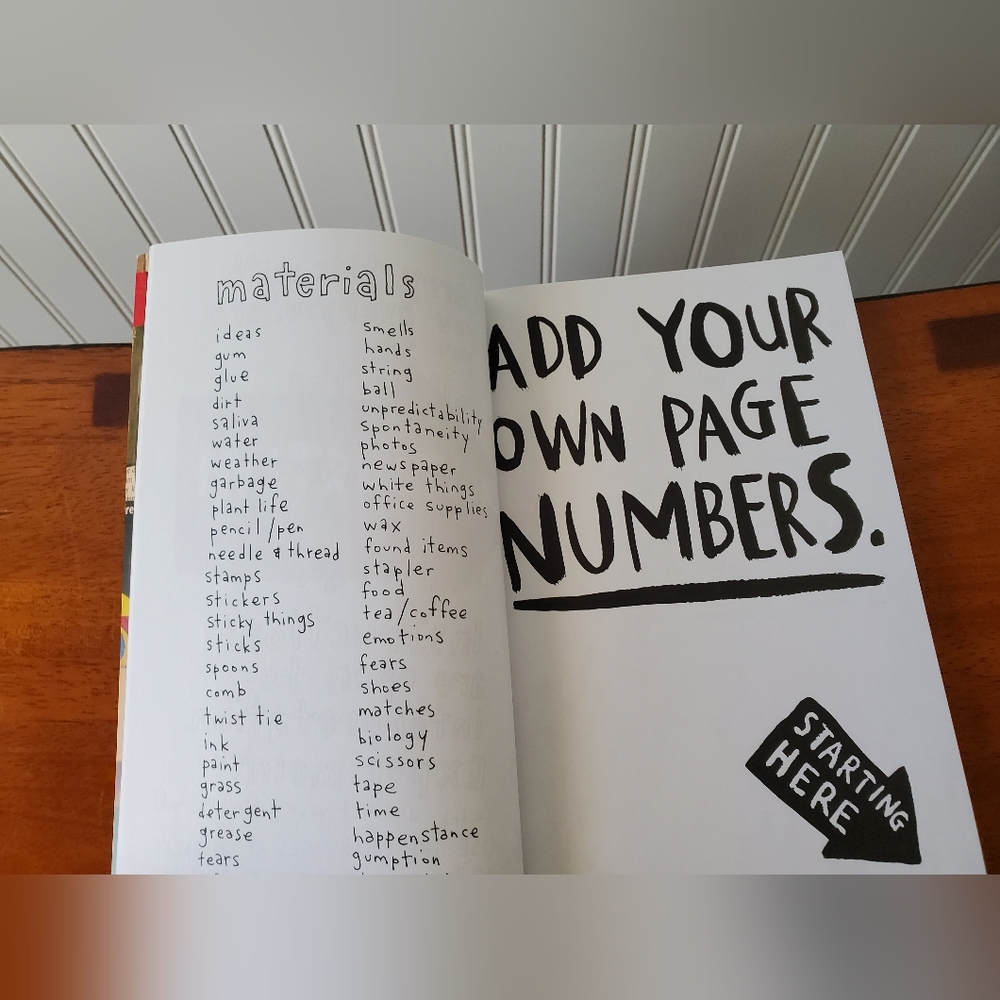 materials
ideas
gum
glue
dirt
saliva
water
weather
garbage
plant life
pencil/pen
needle & thread
stamps
stickers
sticky things
sticks
spoons
comb
twist tie
ink
paint
grass
detergent
grease
tears
smells
hands
string
ball
unpredictability
spontaneity
photos
newspaper
white things
office supplies
wax
found items
stapler
food
tea/coffee
emotions
fears
shoes
matches
biology
scissors
tape
time
happenstance
gumption
ADD YOUR
OWN PAGE
NUMBERS.
STARTING
HERE